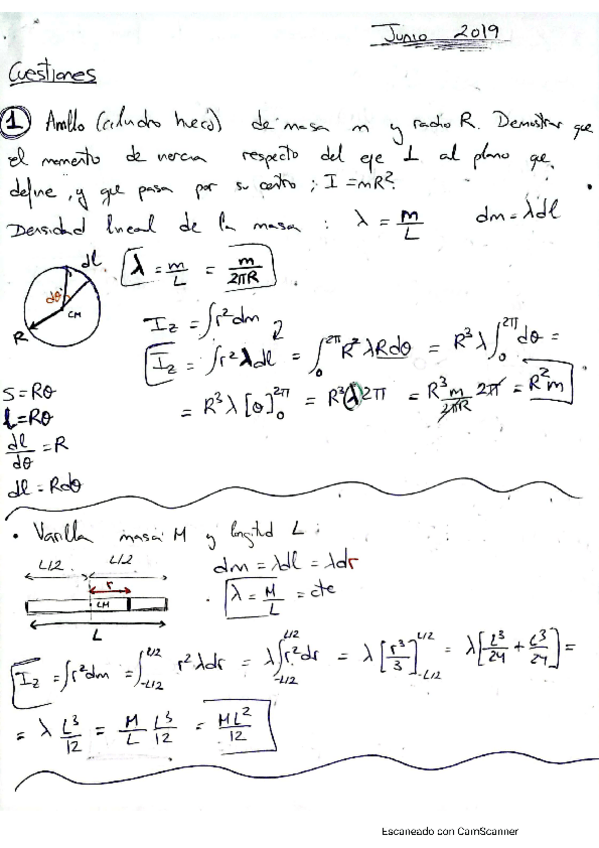 Junio 2019
Cuestiones
1 Anillo (cilindro hueco) de masa m y radio R. Demostrar que
el momento de inercia respecto del eje ⊥ al plano que
define, y que pasa por su centro; I = mR².
Densidad lineal de la masa : λ = m/L dm = λdl
dl λ = m/L = m/2πR
dθ CM R
I_z = ∫r²dm
I_z = ∫r²λdl = ∫₀^2π R²λRdθ = R³λ∫₀^2π dθ =
= R³λ[θ]₀^2π = R³λ2π = R³ m/2πR 2π = R²m
s = Rθ
l = Rθ
dl/dθ = R
dl = Rdθ
• Varilla masa M y longitud L :
L/2 L/2 dm = λdl = λdr
r CM λ = M/L = cte
L
I_z = ∫r²dm = ∫_-L/2^L/2 r²λdr = λ∫_-L/2^L/2 r²dr = λ[r³/3]_-L/2^L/2 = λ[L³/24 + L³/24] =
= λ L³/12 = M/L L³/12 = ML²/12
Escaneado con CamScanner